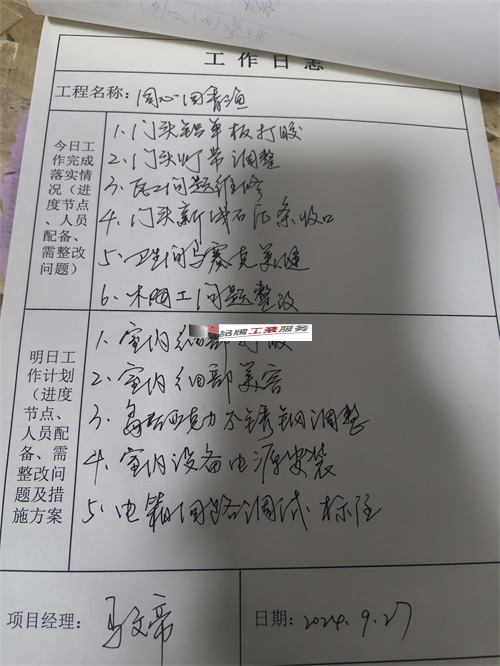 工作日志
工程名称：同心回青渔
今日工作完成落实情况（进度节点、人员配备、需整改问题）
1、门头铝单板打胶
2、门头灯带调整
3、瓦工问题维修
4、门头新城石压条收口
5、卫生间马赛克美缝
6、木饰工问题整改
品牌工装服务
明日工作计划（进度节点、人员配备、需整改问题及措施方案
1、室内细部打胶
2、室内细部美容
3、亚克力不锈钢调整
4、室内设备电源安装
5、电箱回路调试 标注
项目经理：马文帝
日期：2024.9.27